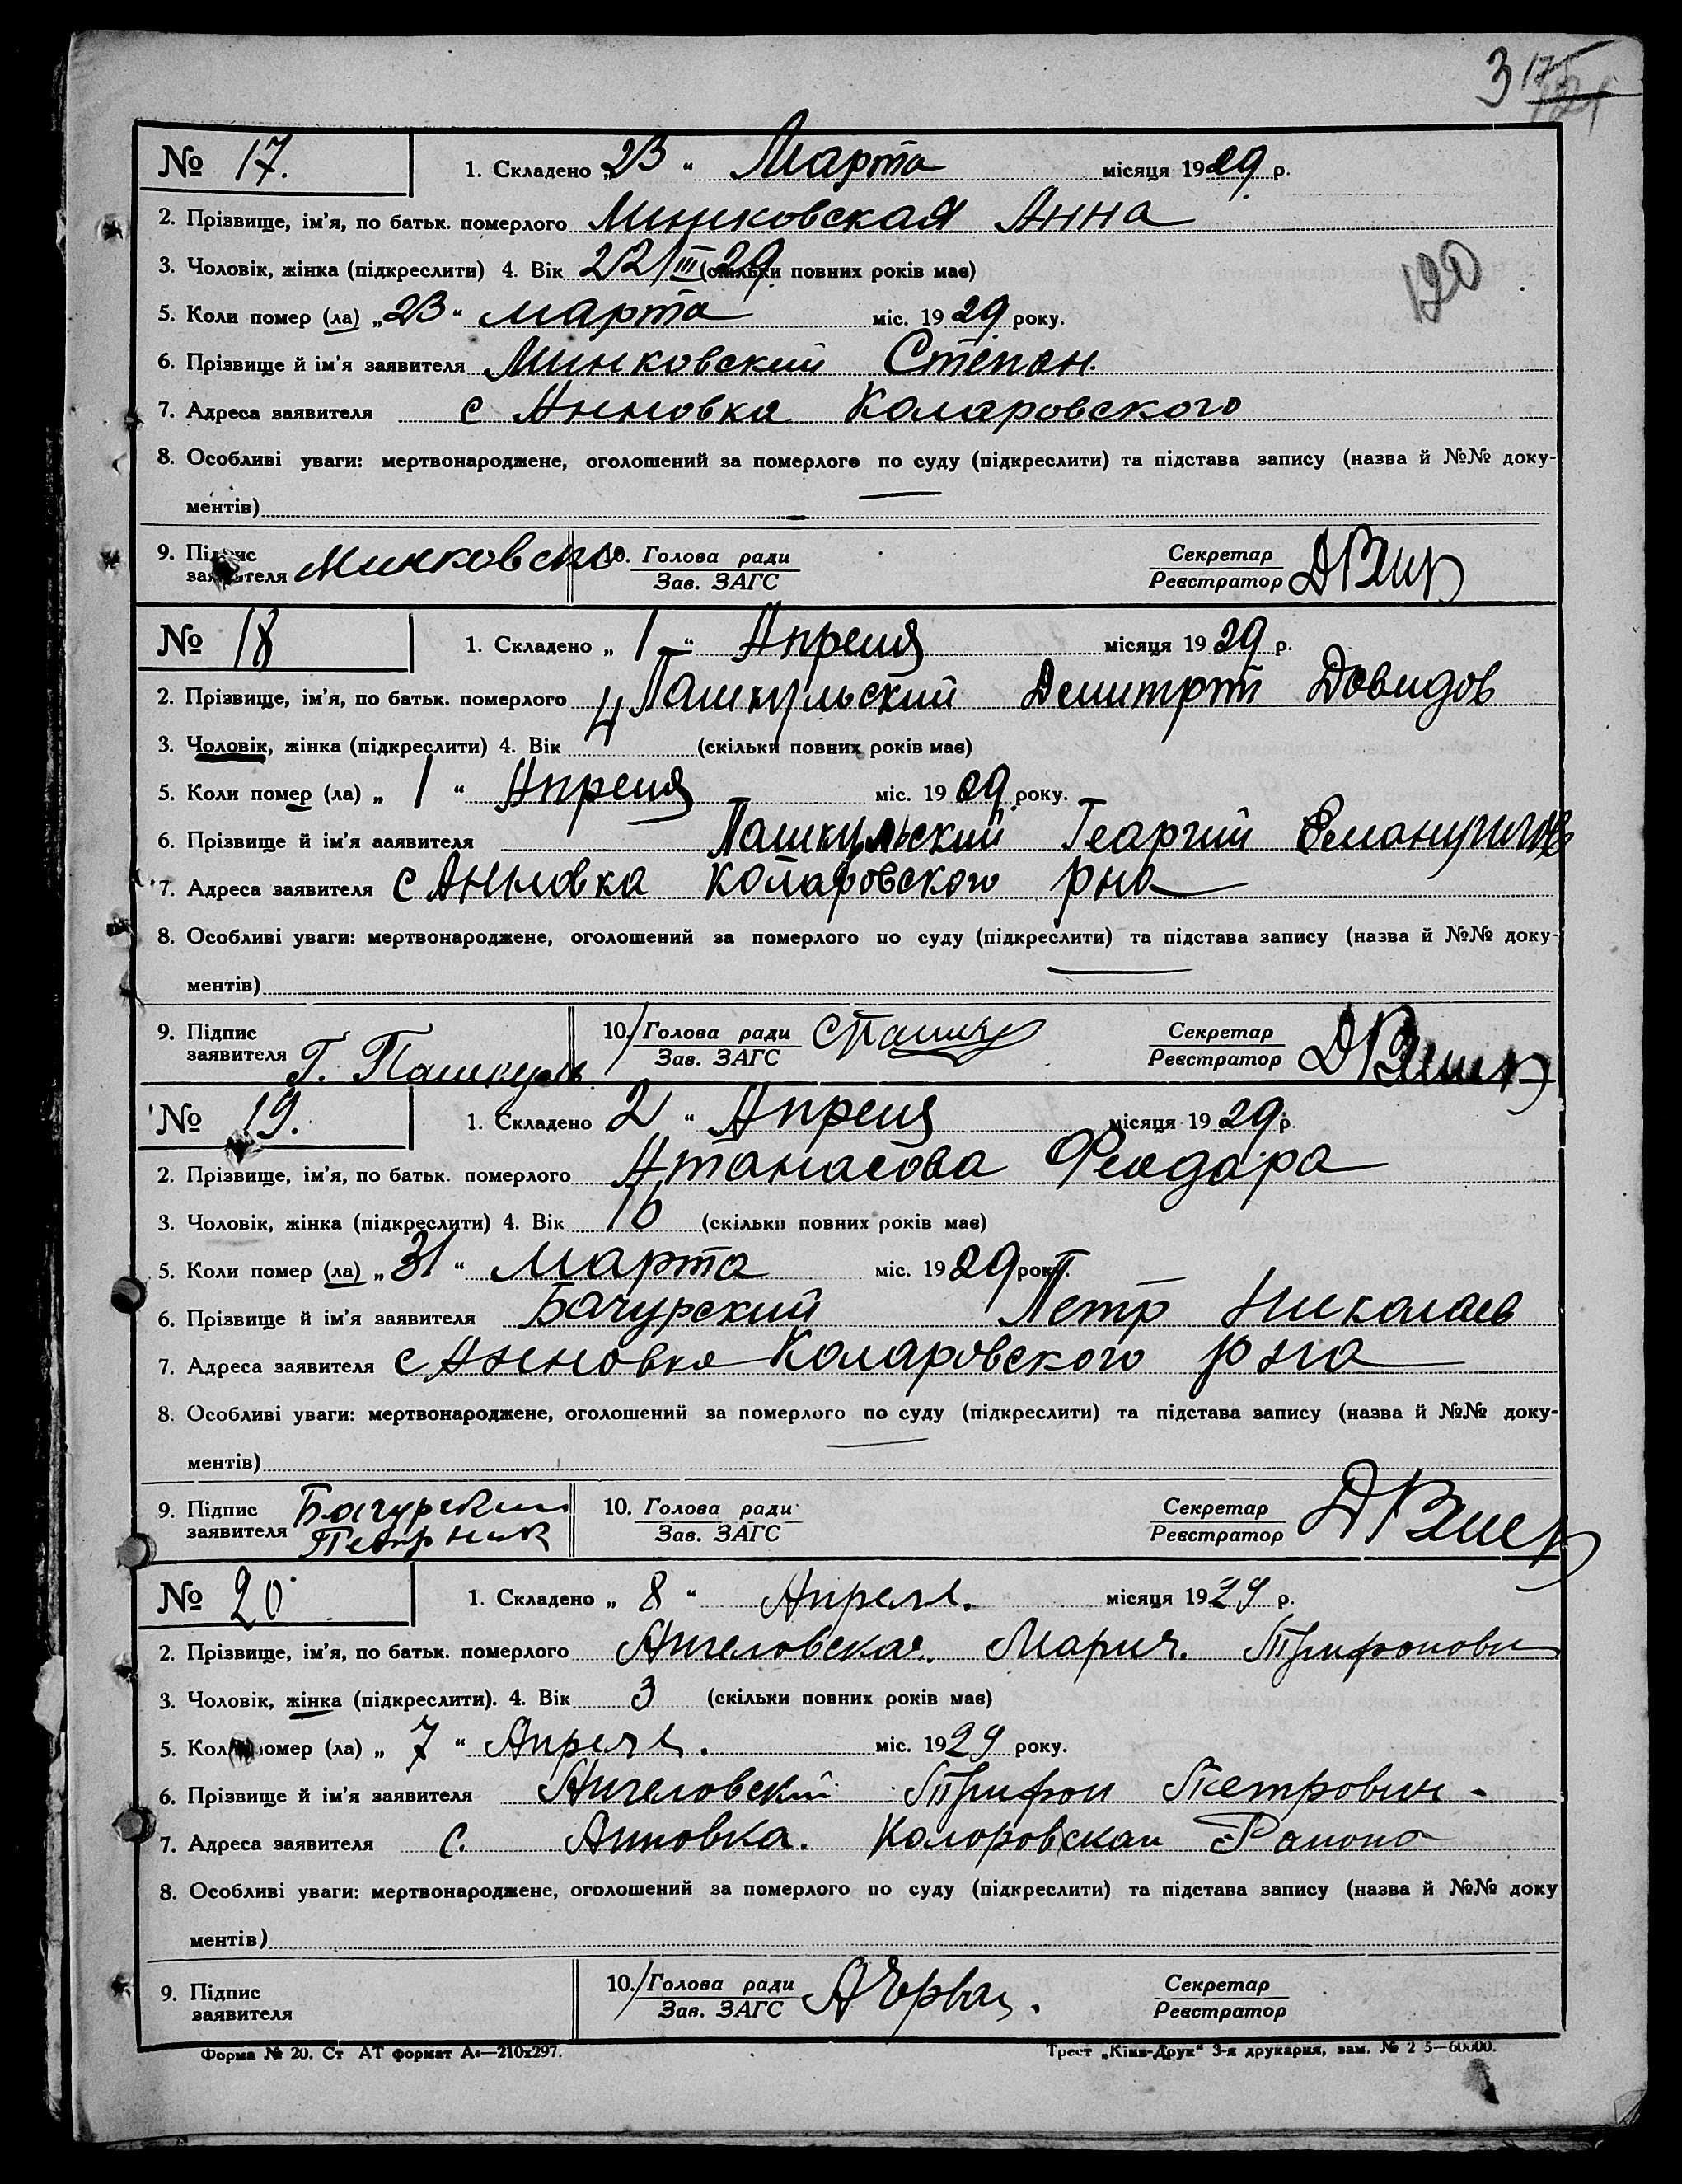 3
№ 17. 1. Складено „23“ Марта місяця 1929 р.
2. Прізвище, ім'я, по батьк. померлого Минковская Анна
120
3. Чоловік, жінка (підкреслити) 4. Вік 22/III 29. (скільки повних років має)
5. Коли помер (ла) „23“ марта міс. 1929 року.
6. Прізвище й ім'я заявителя Минковский Степан.
7. Адреса заявителя с Анновка Коларовского
8. Особливі уваги: мертвонароджене, оголошений за померлого по суду (підкреслити) та підстава запису (назва й №№ доку-
ментів)
9. Підпис заявителя Минковски 10. Голова ради Зав. ЗАГС Секретар Реєстратор
№ 18 1. Складено „1“ Апреля місяця 1929 р.
2. Прізвище, ім'я, по батьк. померлого Пашкульский Демитрий Давидов
3. Чоловік, жінка (підкреслити) 4. Вік 4 (скільки повних років має)
5. Коли помер (ла) „1“ Апреля міс. 1929 року.
6. Прізвище й ім'я заявителя Пашкульский Георгий
7. Адреса заявителя с Анновка Коларовского рна
8. Особливі уваги: мертвонароджене, оголошений за померлого по суду (підкреслити) та підстава запису (назва й №№ доку-
ментів)
9. Підпис заявителя Г. Пашкульс 10. Голова ради Зав. ЗАГС Секретар Реєстратор
№ 19. 1. Складено 2“ Апреля місяця 1929 р.
2. Прізвище, ім'я, по батьк. померлого Атанасова Феодара
3. Чоловік, жінка (підкреслити) 4. Вік 16 (скільки повних років має)
5. Коли помер (ла) „31“ Марта міс. 1929 року.
6. Прізвище й ім'я заявителя Бачурский Петр Николаев
7. Адреса заявителя с Анновка Коларовского рна
8. Особливі уваги: мертвонароджене, оголошений за померлого по суду (підкреслити) та підстава запису (назва й №№ доку-
ментів)
9. Підпис заявителя Бачурский Петр Ник 10. Голова ради Зав. ЗАГС Секретар Реєстратор
№ 20 1. Складено „8“ Апреля. місяця 1929 р.
2. Прізвище, ім'я, по батьк. померлого Ангеловская Мария Трифонови
3. Чоловік, жінка (підкреслити). 4. Вік 3 (скільки повних років має)
5. Коли помер (ла) „7“ Апреля. міс. 1929 року.
6. Прізвище й ім'я заявителя Ангеловский Трифон Петрович
7. Адреса заявителя С. Анновка. Колоровскаи Раиона
8. Особливі уваги: мертвонароджене, оголошений за померлого по суду (підкреслити) та підстава запису (назва й №№ доку
ментів)
9. Підпис заявителя 10. Голова ради Зав. ЗАГС Секретар Реєстратор
Форма № 20. Ст АТ формат А4—210х297. Трест „Київ-Друк“ 3-я друкарня, зам. № 2 5—60000.